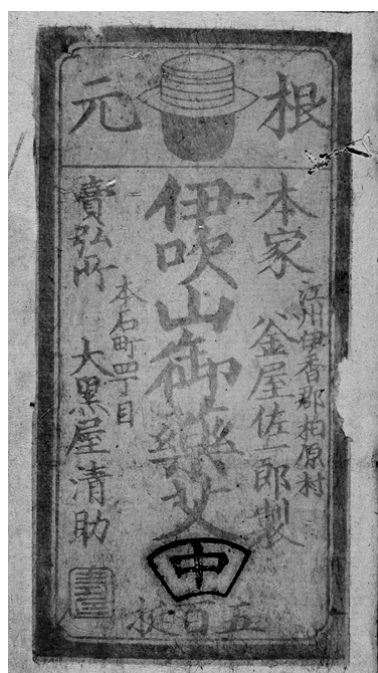 根元
本家
江州伊香郡柏原村
釜屋佐一郎製
伊吹山御藥艾
中
賣弘所
本石町四丁目
大黒屋清助
五百挺